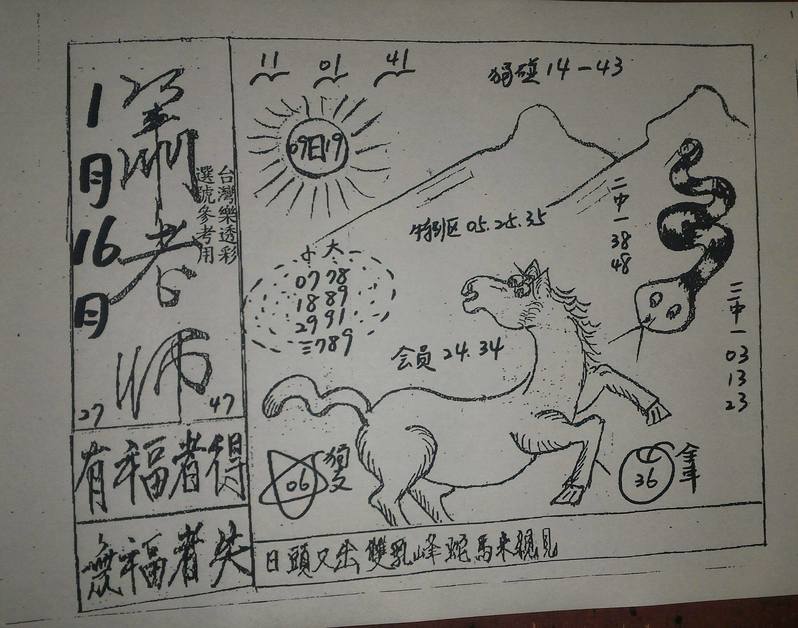 1月16日
蕭老师
台灣樂透彩
選號參考用
27 47
有福者得
無福者失
11 01 41
獨碰 14-43
09日19
特别区 05.25.35
二中一 38 48
小 大
07 78
18 89
29 91
三789
会员 24.34
三中一 03 13 23
06
独支
36
全年
日頭又出雙乳峰蛇馬来